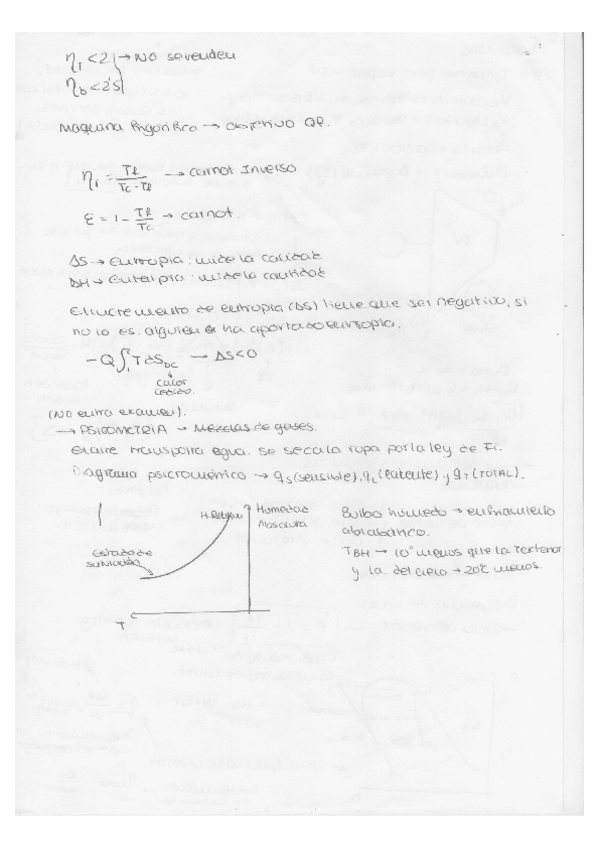 η₁ < 2 → No se venden
η_b < 2'5
Maquina frigorífica → objetivo QF.
η₁ = Tf / Tc - Tf → carnot Inverso
ε = 1 - Tf / Tc → carnot.
ΔS → Entropia : mide la calidad
ΔH → Entalpia : mide la cantidad
El incremento de entropia (ΔS) tiene que ser negativo, si
no lo es, alguien ha aportado entropia.
- Q ∫₁ T dS_DC → ΔS < 0
calor
cedido.
(No entra examen).
→ PSICOMETRIA → Mezclas de gases.
El aire transporta agua. se seca la ropa por la ley de
Diagrama psicrométrico → qs (sensible), qL (latente) y qT (TOTAL).
H. Relativa
Humedad
Absoluta
Estado de
T
Bulbo húmedo → enfriamiento
adiabático.
T BH → 10° menos que la T exterior
y la del cielo → 20°C menos.